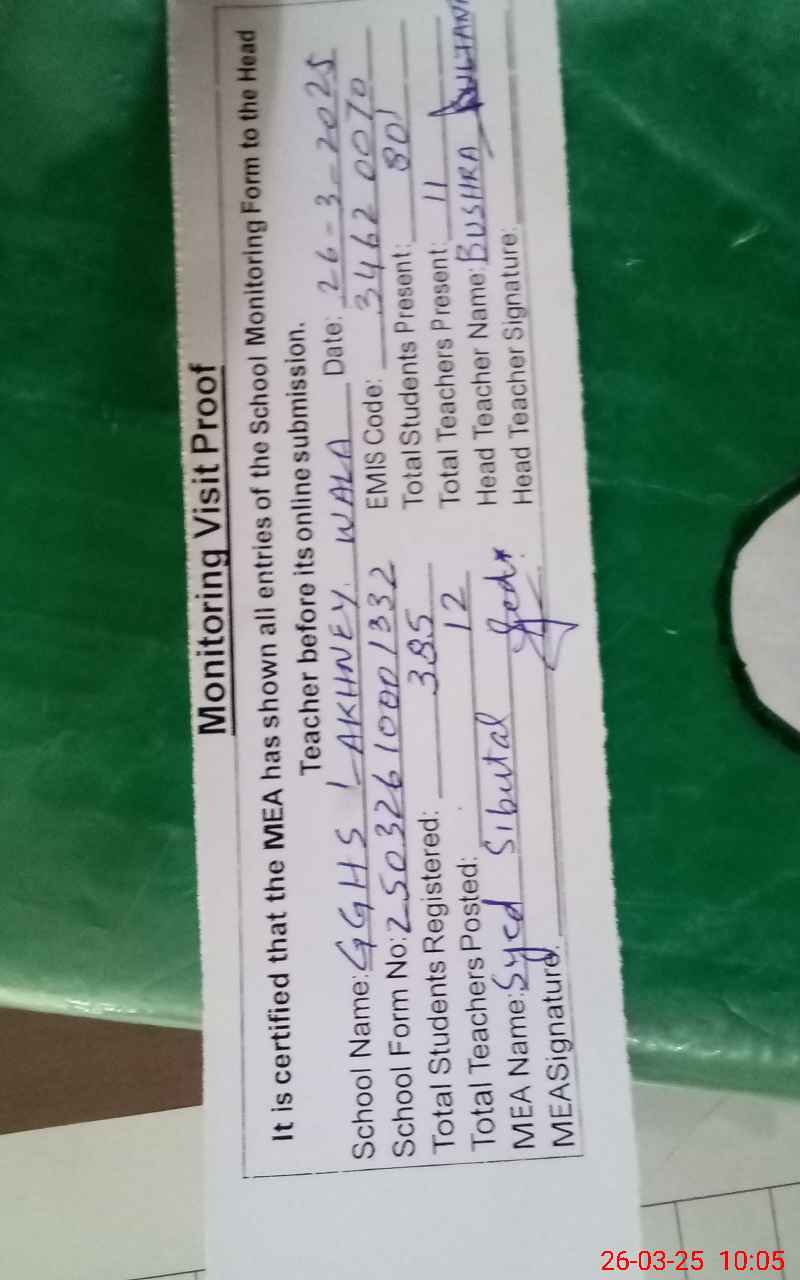 Monitoring Visit Proof
It is certified that the MEA has shown all entries of the School Monitoring Form to the Head
Teacher before its online submission.
School Name: GGHS LAKHNEY WALA Date: 26-3-2025
School Form No: 25032610001332 EMIS Code: 34620070
Total Students Registered: 385 Total Students Present: 80
Total Teachers Posted: 12 Total Teachers Present: 11
MEA Name: Syed Sibutal Head Teacher Name: BUSHRA SULTANA
MEA Signature: Head Teacher Signature:
26-03-25 10:05